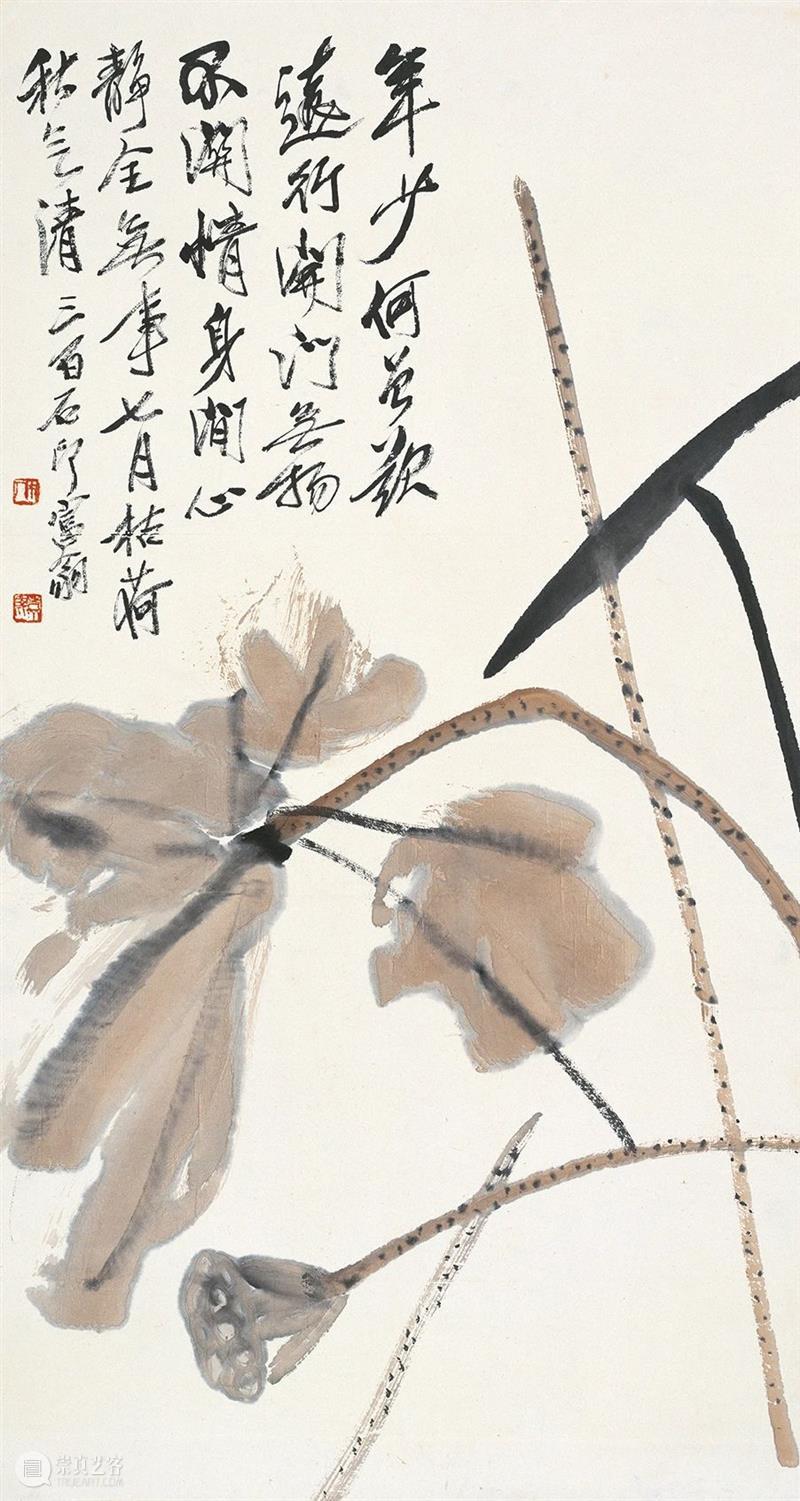 年少何曾欺
远行开门无物
不关情身闲心
静全无事七月枯荷
秋气清三百石印富翁
崇真艺客
TRUEART.COM